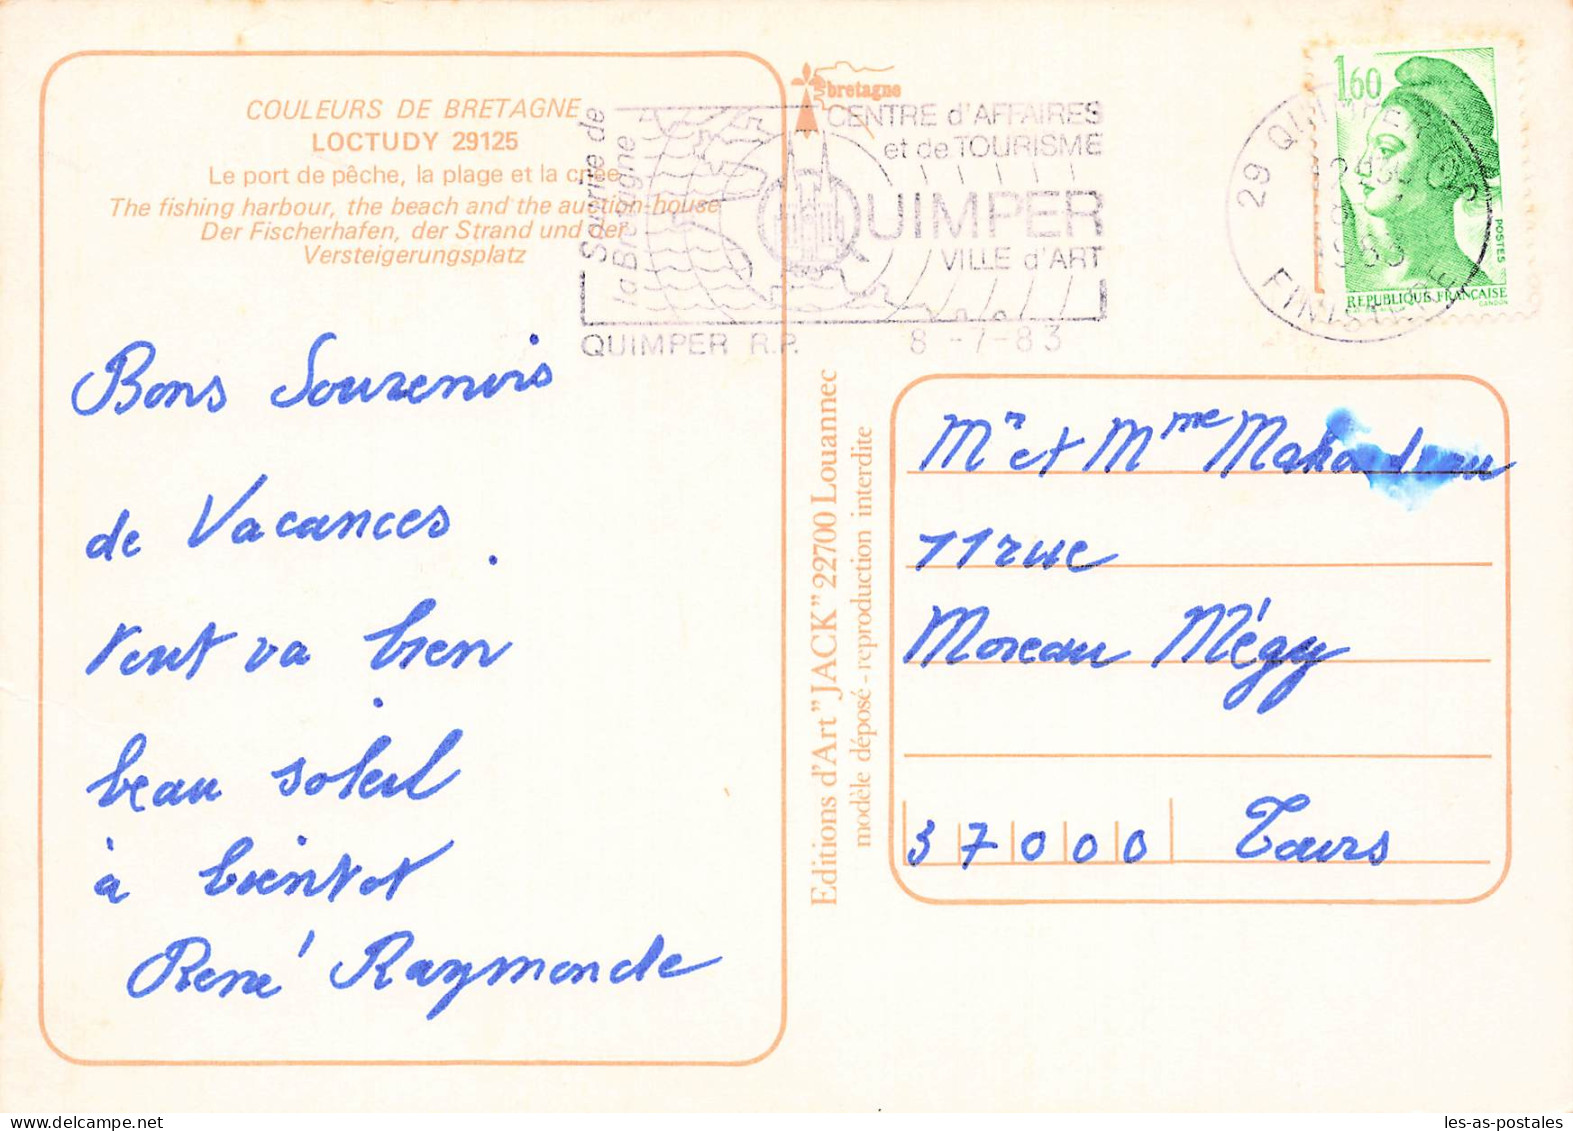 COULEURS DE BRETAGNE
LOCTUDY 29125
Le port de pêche, la plage et la criée
The fishing harbour, the beach and the auction-house
Der Fischerhafen, der Strand und der
Versteigerungsplatz
Bons Souvenirs
de Vacances.
tout va bien.
beau soleil
à bientot
René Raymonde
Sourire de
la Bretagne
bretagne
CENTRE d'AFFAIRES
et de TOURISME
QUIMPER
VILLE d'ART
QUIMPER R.P. 8-7-83
29 QUIMPER
8-7
1983
FINISTERE
1,60
POSTES
REPUBLIQUE FRANÇAISE
GANDON
Editions d'Art "JACK" 22700 Louannec
modèle déposé - reproduction interdite
Mr et Mme
11 rue
Moreau Mégy
37000 Tours
les-as-postales